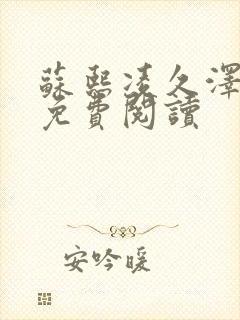 蘇熙凌久澤
免費閱讀
安吟暖